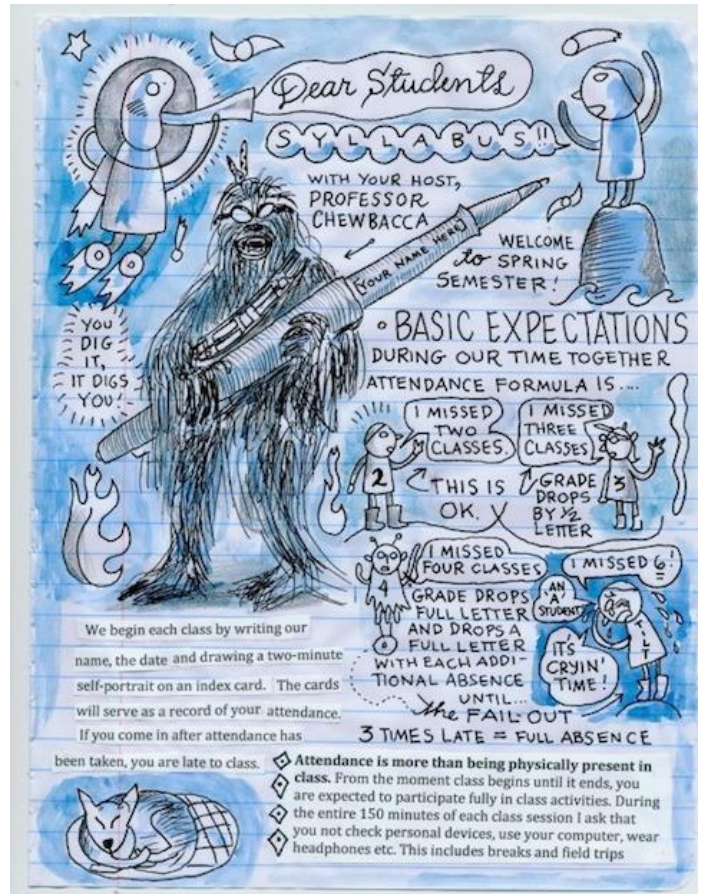 Dear Students
SYLLABUS!!
WITH YOUR HOST,
PROFESSOR
CHEWBACCA
(YOUR NAME HERE)
WELCOME
to SPRING
SEMESTER!
YOU
DIG
IT,
IT DIGS
YOU!
• BASIC EXPECTATIONS
DURING OUR TIME TOGETHER
ATTENDANCE FORMULA IS....
I MISSED
TWO
CLASSES.
2
THIS IS
OK.
I MISSED
THREE
CLASSES
3
GRADE
DROPS
BY ½
LETTER
I MISSED
FOUR CLASSES
4
GRADE DROPS
FULL LETTER
AND DROPS A
FULL LETTER
WITH EACH ADDI-
TIONAL ABSENCE
UNTIL...
the FAIL OUT
I MISSED 6!
AN
'A'
STUDENT
IT'S
CRYIN'
TIME!
3 TIMES LATE = FULL ABSENCE
We begin each class by writing our
name, the date and drawing a two-minute
self-portrait on an index card. The cards
will serve as a record of your attendance.
If you come in after attendance has
been taken, you are late to class.
Attendance is more than being physically present in
class. From the moment class begins until it ends, you
are expected to participate fully in class activities. During
the entire 150 minutes of each class session I ask that
you not check personal devices, use your computer, wear
headphones etc. This includes breaks and field trips